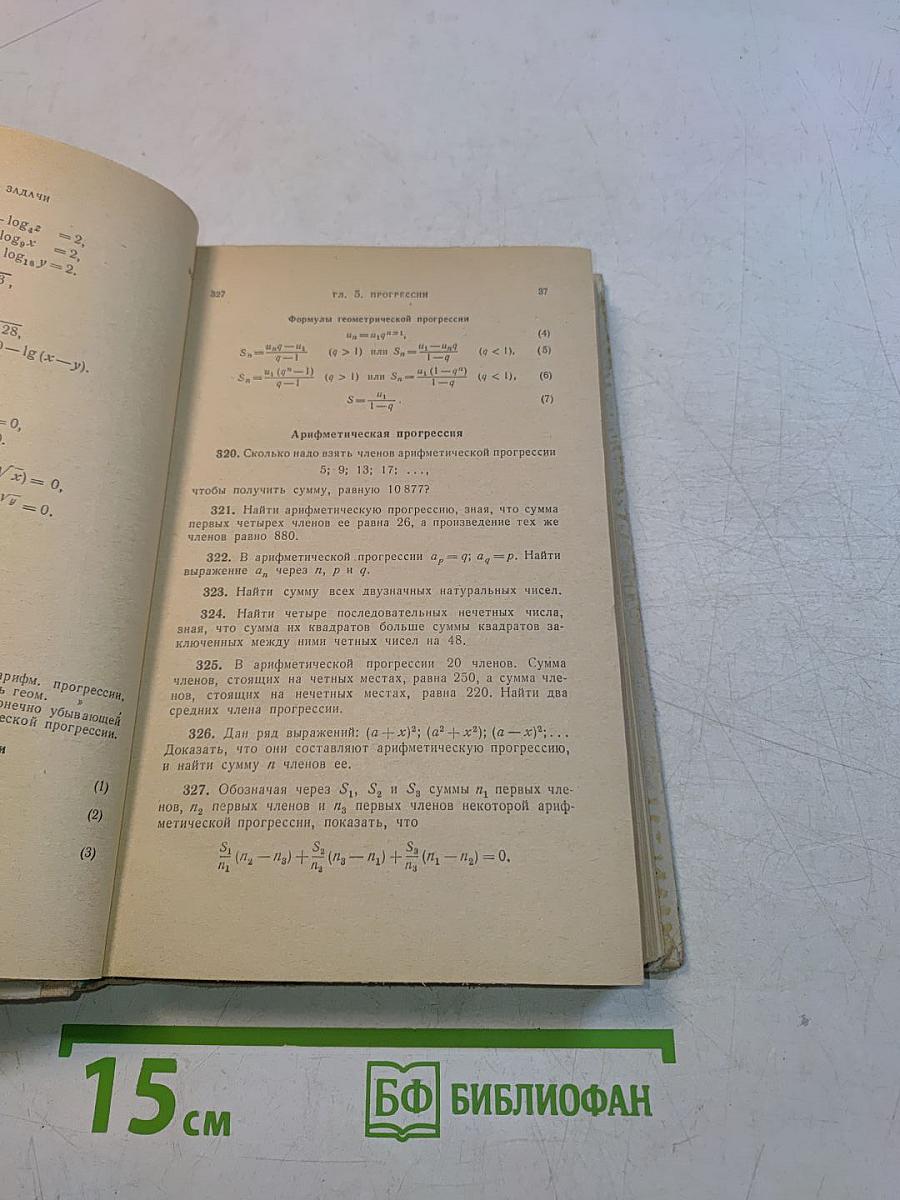 ЗАДАЧИ
log₄z = 2,
log₉x = 2,
log₁₆y = 2.
28,
— lg (x—y).
= 0,
√x) = 0,
√y = 0.
арифм. прогрессии,
геом. »
убывающей
прогрессии.
(1)
(2)
(3)
327 ГЛ. 5. ПРОГРЕССИИ 37
Формулы геометрической прогрессии
uₙ = u₁qⁿ⁻¹, (4)
Sₙ = (uₙq — u₁)/(q — 1) (q > 1) или Sₙ = (u₁ — uₙq)/(1 — q) (q < 1), (5)
Sₙ = u₁(qⁿ — 1)/(q — 1) (q > 1) или Sₙ = u₁(1 — qⁿ)/(1 — q) (q < 1), (6)
S = u₁/(1 — q). (7)
Арифметическая прогрессия
320. Сколько надо взять членов арифметической прогрессии
5; 9; 13; 17; ...,
чтобы получить сумму, равную 10 877?
321. Найти арифметическую прогрессию, зная, что сумма
первых четырех членов ее равна 26, а произведение тех же
членов равно 880.
322. В арифметической прогрессии aₚ = q; a_q = p. Найти
выражение aₙ через n, p и q.
323. Найти сумму всех двузначных натуральных чисел.
324. Найти четыре последовательных нечетных числа,
зная, что сумма их квадратов больше суммы квадратов за-
ключенных между ними четных чисел на 48.
325. В арифметической прогрессии 20 членов. Сумма
членов, стоящих на четных местах, равна 250, а сумма чле-
нов, стоящих на нечетных местах, равна 220. Найти два
средних члена прогрессии.
326. Дан ряд выражений: (a + x)²; (a² + x²); (a — x)²; ...
Доказать, что они составляют арифметическую прогрессию,
и найти сумму n членов ее.
327. Обозначая через S₁, S₂ и S₃ суммы n₁ первых чле-
нов, n₂ первых членов и n₃ первых членов некоторой ариф-
метической прогрессии, показать, что
S₁/n₁ (n₂ — n₃) + S₂/n₂ (n₃ — n₁) + S₃/n₃ (n₁ — n₂) = 0.
15 см
БФ БИБЛИОФАН